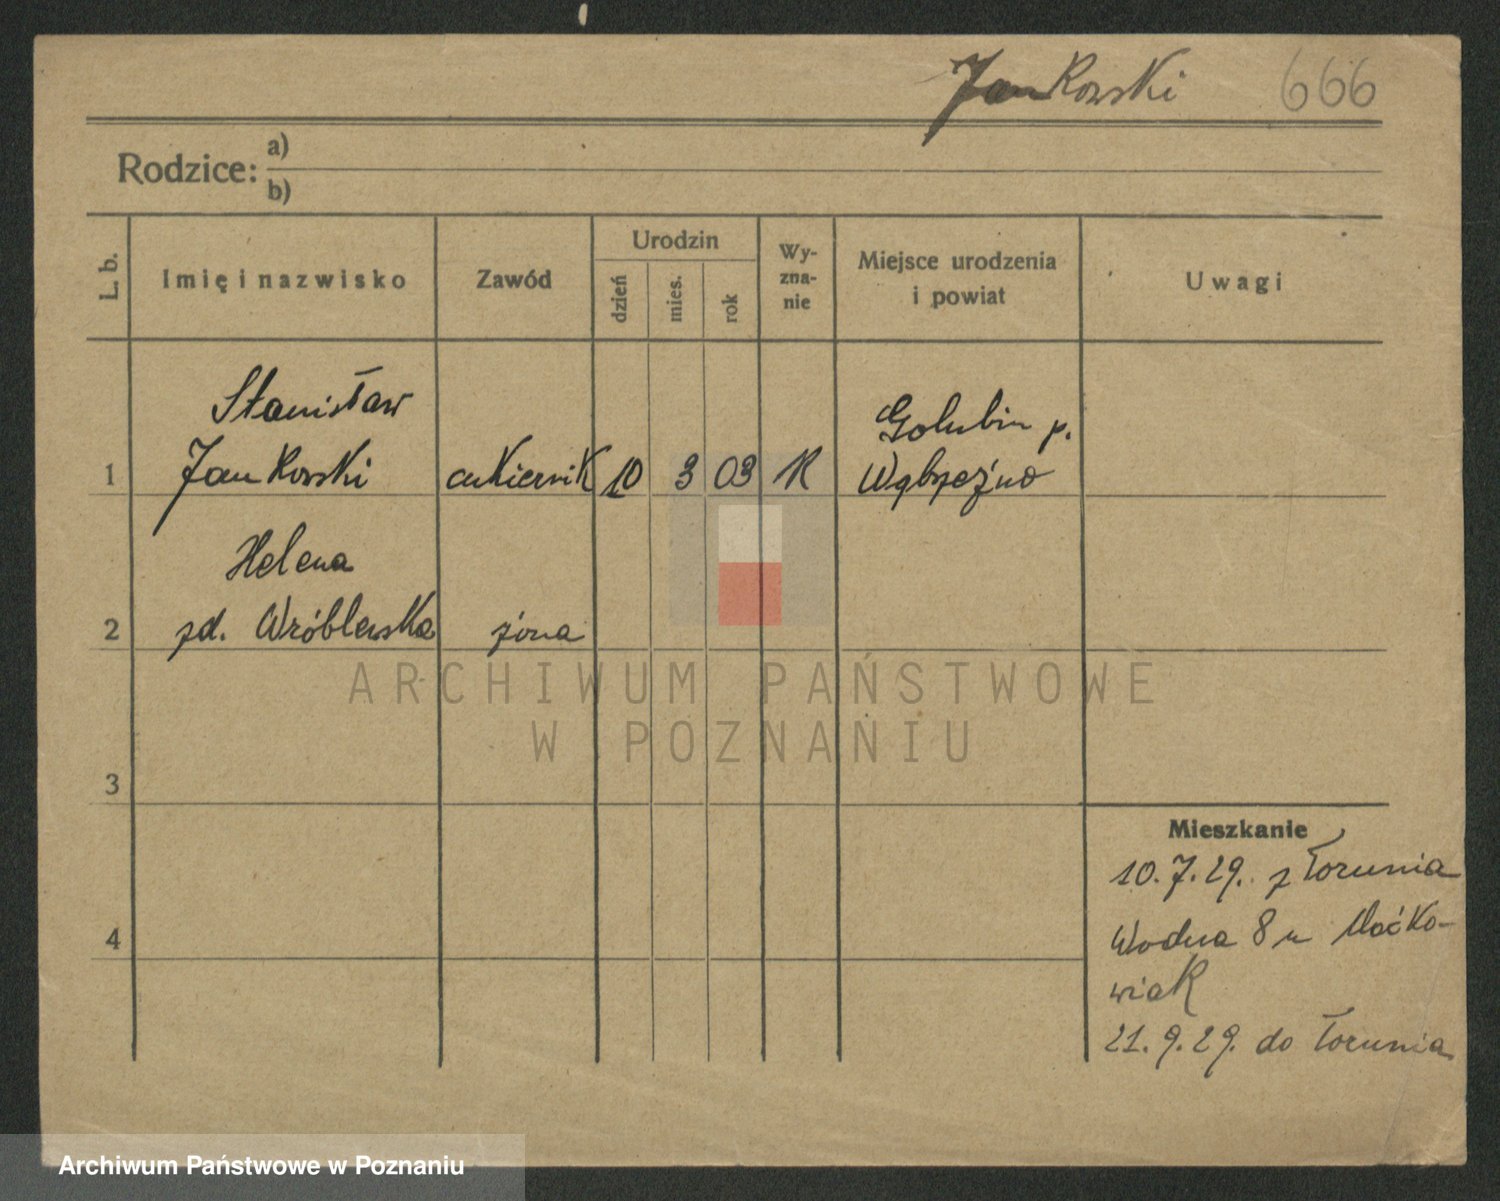 Jankowski 666
Rodzice: a)
b)
L. b. Imię i nazwisko Zawód Urodzin dzień mies. rok Wy-zna-nie Miejsce urodzenia i powiat Uwagi
Stanisław
1 Jankowski cukiernik 10 3 03 R Golubin p. Wąbrzeźno
Helena
2 zd. Wróblewska żona
ARCHIWUM PAŃSTWOWE
W POZNANIU
3
Mieszkanie
10.7.29. z Torunia
4 Wodna 8 u Maćko-
wiak
21.9.29. do Torunia
Archiwum Państwowe w Poznaniu